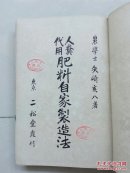 農学士 矢崎亥八著
人糞代用 肥料自家製造法
東京 二松堂発行